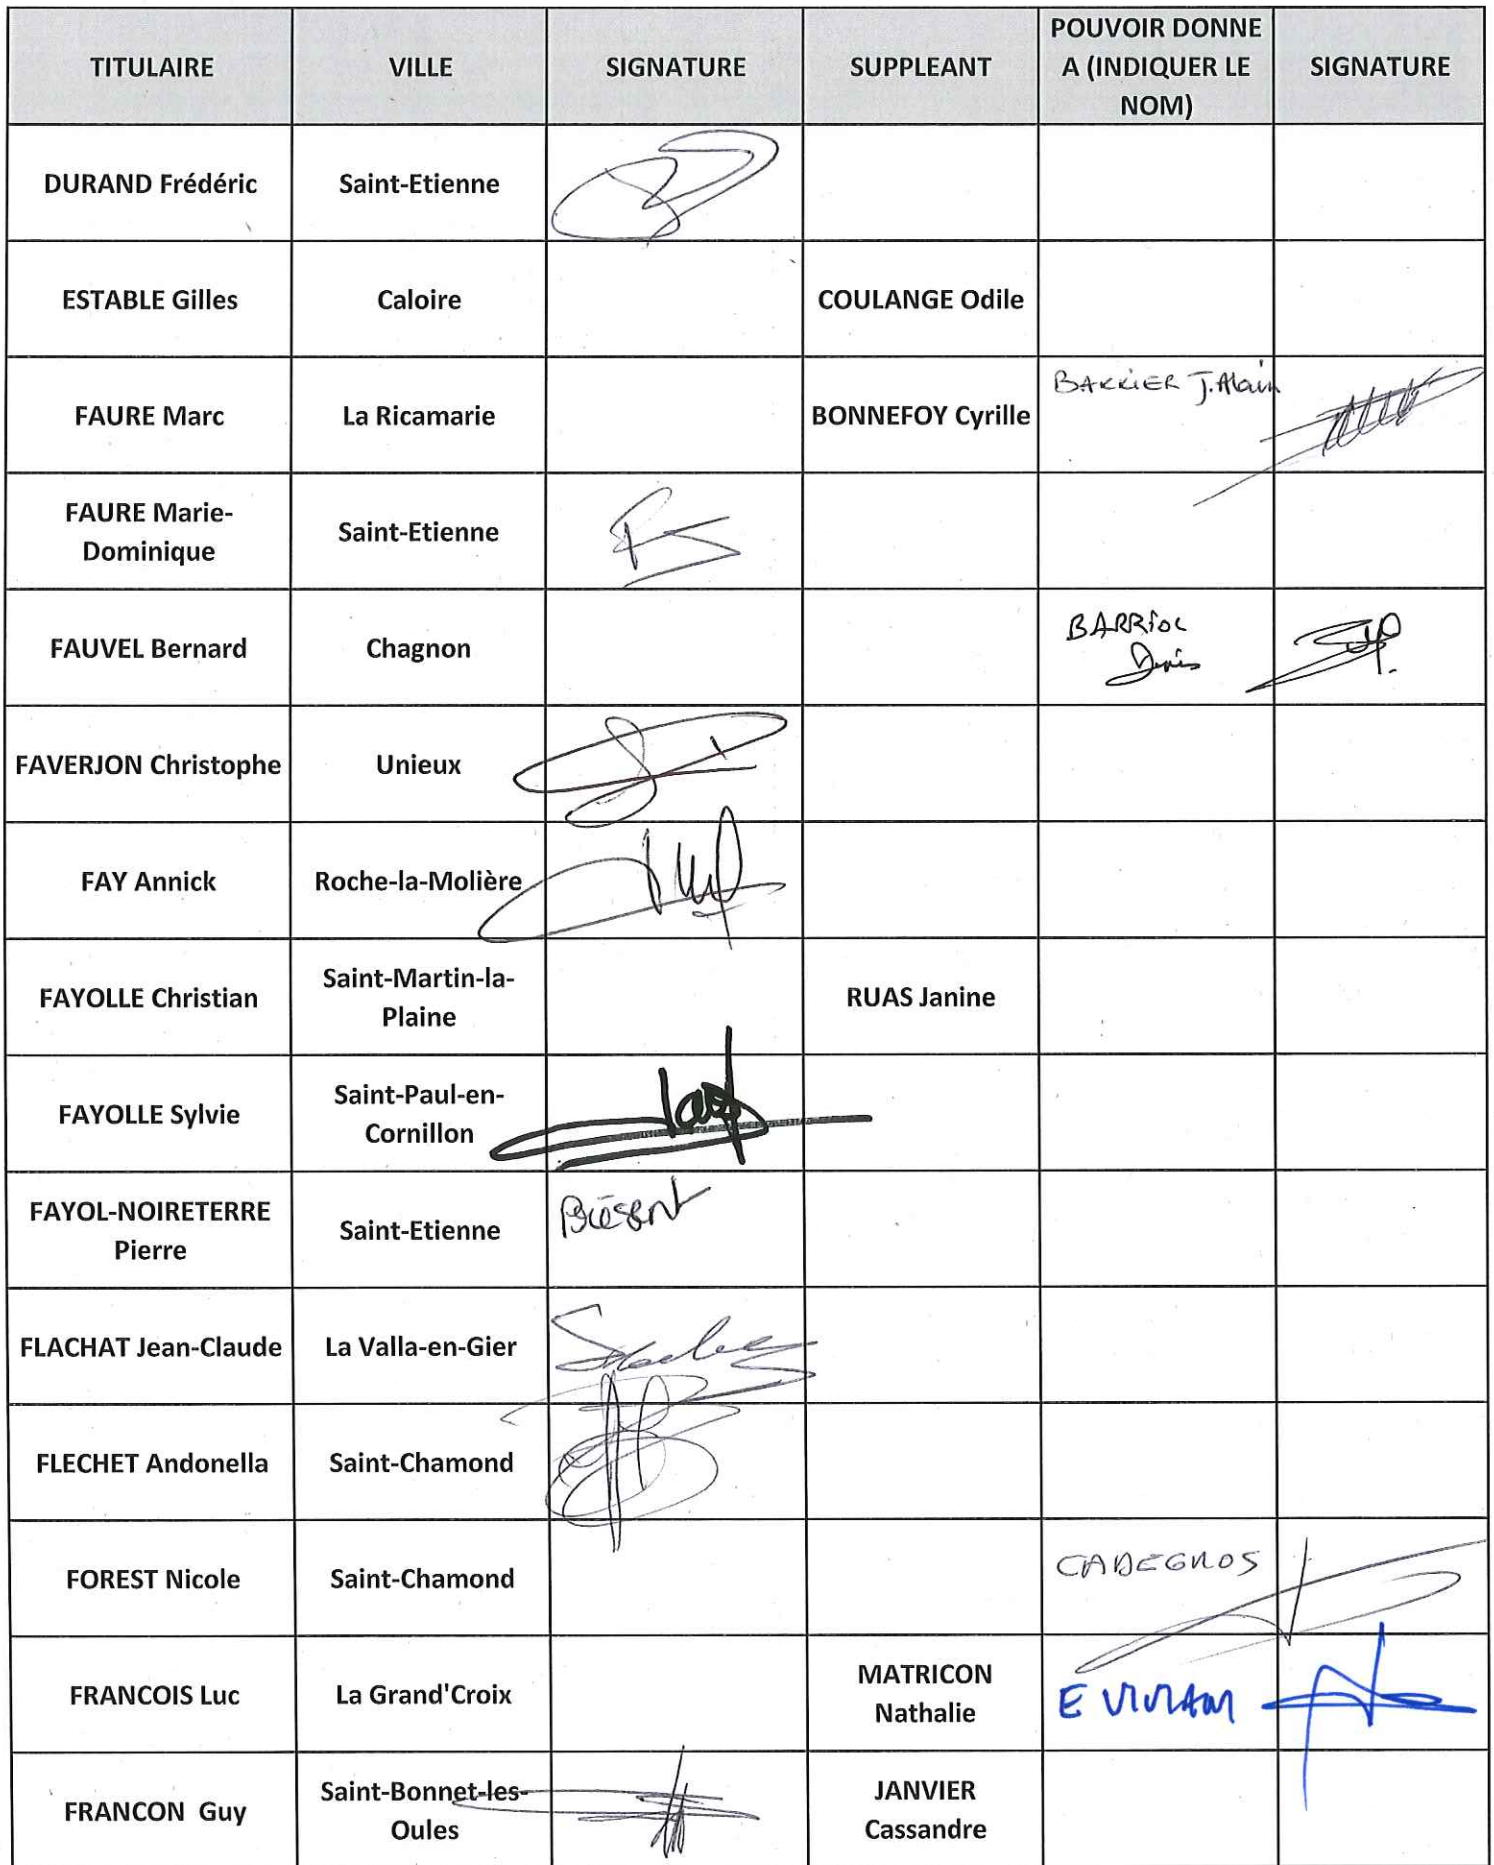 TITULAIRE VILLE SIGNATURE SUPPLEANT POUVOIR DONNE A (INDIQUER LE NOM) SIGNATURE
DURAND Frédéric Saint-Etienne
ESTABLE Gilles Caloire COULANGE Odile
FAURE Marc La Ricamarie BONNEFOY Cyrille BARRIER J.Alain
FAURE Marie-Dominique Saint-Etienne
FAUVEL Bernard Chagnon BARRIOL Denis
FAVERJON Christophe Unieux
FAY Annick Roche-la-Molière
FAYOLLE Christian Saint-Martin-la-Plaine RUAS Janine
FAYOLLE Sylvie Saint-Paul-en-Cornillon
FAYOL-NOIRETERRE Pierre Saint-Etienne Présent
FLACHAT Jean-Claude La Valla-en-Gier
FLECHET Andonella Saint-Chamond
FOREST Nicole Saint-Chamond CADEGROS
FRANCOIS Luc La Grand'Croix MATRICON Nathalie E VIVIAM
FRANCON Guy Saint-Bonnet-les-Oules JANVIER Cassandre